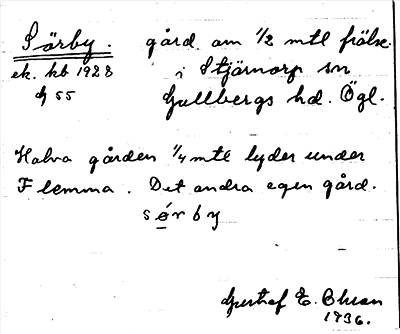 Sörby. gård om 1/2 mtl frälse.
ek. kb 1928 i Stjärnorp sn
G 55 Gullbergs hd. Ögl.
Halva gården 1/4 mtl lyder under
Flemma. Det andra egen gård.
sørby
Gustaf E. Olsson
1936.